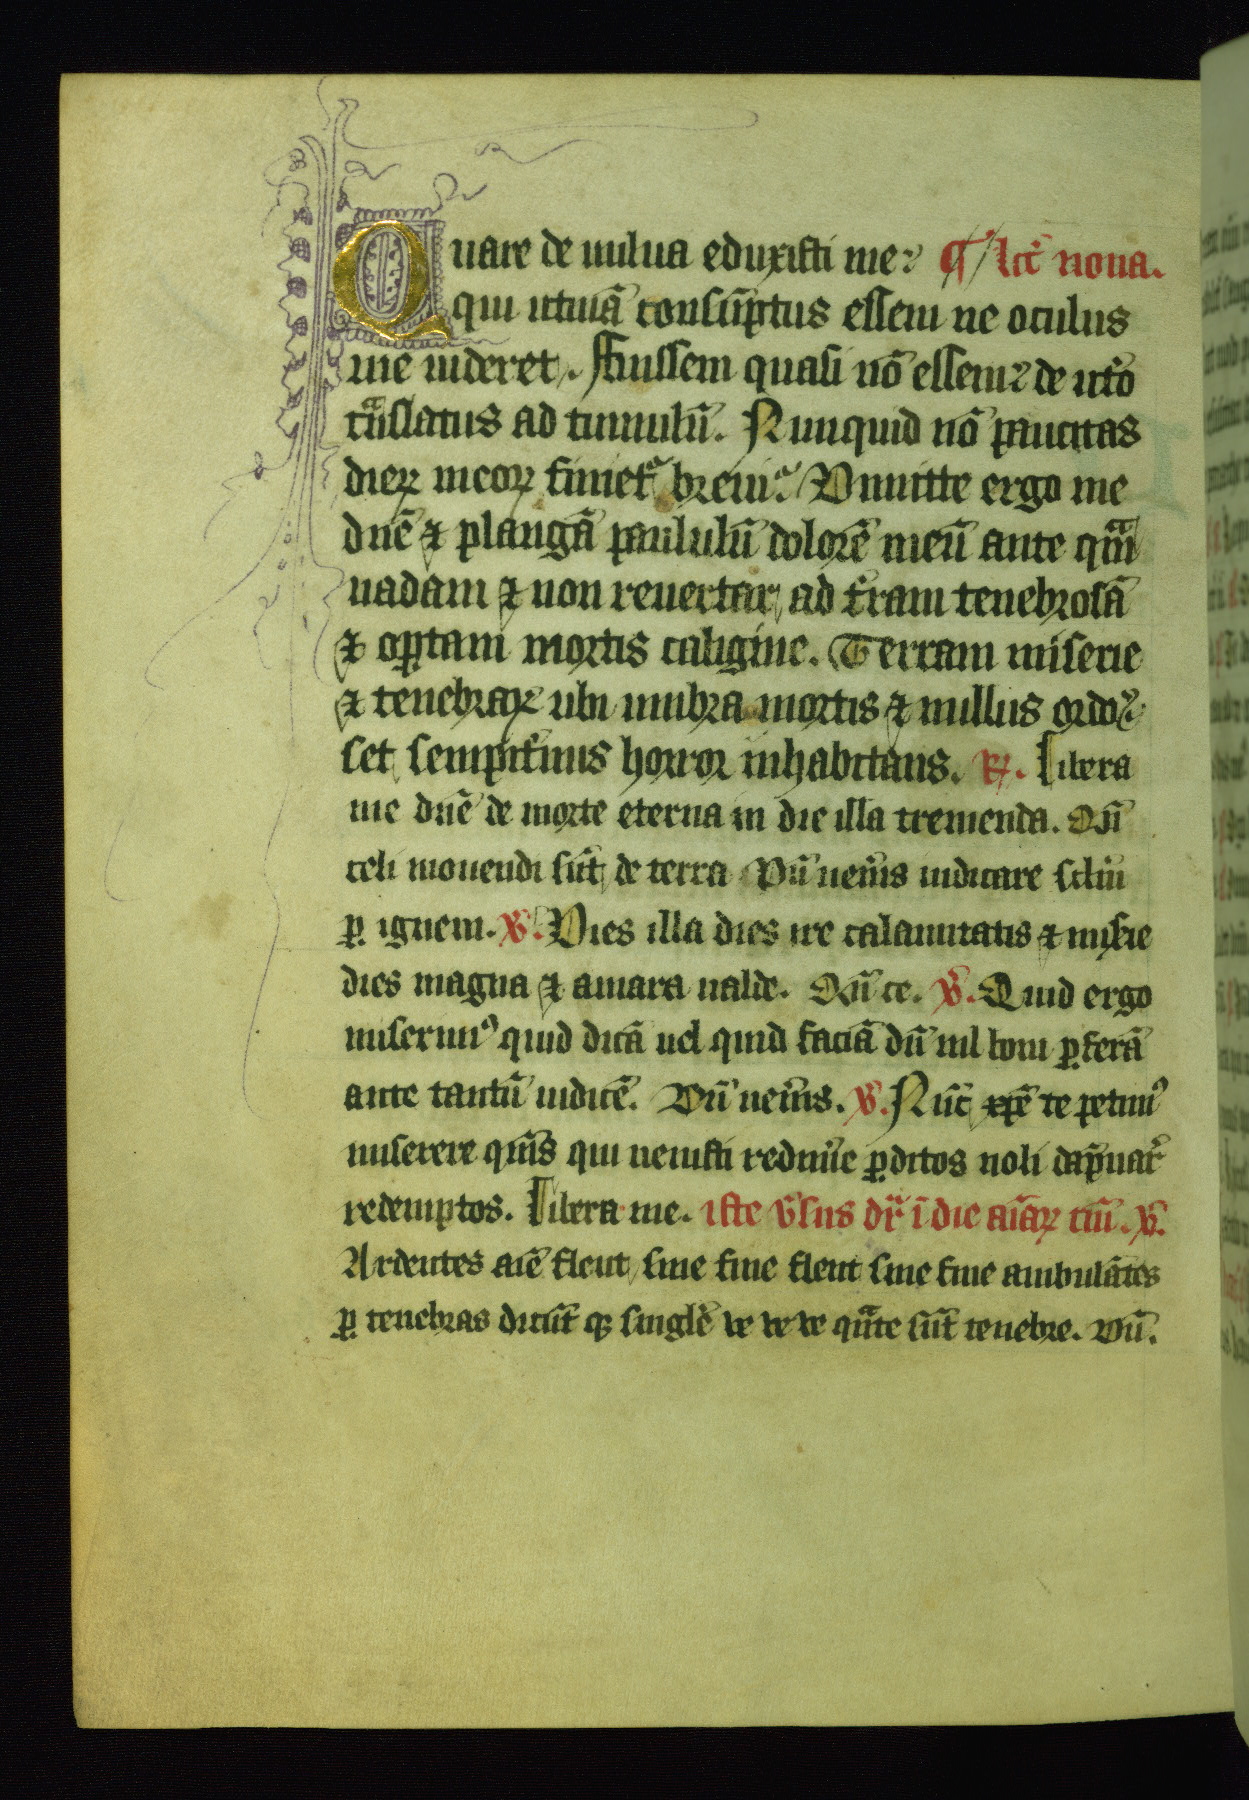 Quare de uulua eduxisti me? ¶ lcc̃ nona.
qui utinā consūptus essem ne oculus
me uideret. Fuissem quasi nō essem? de uto
tnslatus ad tumulū. Nunquid nō paucitas
dieꝝ meoꝝ finiet breui. Dimitte ergo me
dnē ⁊ plangā paululū dolorē meū ante qm
uadam ⁊ non reuertar, ad tram tenebrosā
⁊ optam mortis caligine. Terram miserie
⁊ tenebraꝝ ubi umbra mortis ⁊ nullus ordo?
set sempitnus horror inhabitans. ℟. Libera
me dnē de morte eterna in die illa tremenda. Qñ
celi mouendi sūt de terra Dū uenis iudicare sclm
ꝑ ignem. ℣. Dies illa dies ire calamitatis ⁊ misie
dies magna ⁊ amara ualde. Qñ ce. ℣. Quid ergo
miserimꝰ quid dicā uel quid faciā dū nil boni ꝑferā
ante tantū iudicē. Dū uenis. ℣. Nūc xp̄e te petimꝰ
miserere qms qui uenisti redime ꝑditos noli dāpnar
redemptos. Libera me. iste v̄sus dr ī die aīaꝝ tm̄. ℣.
Ardentes aīe flent sine fine flent sine fine ambulātes
ꝑ tenebras dicūt qꝫ singlē ve ve ve qnte sūt tenebre. Dū.